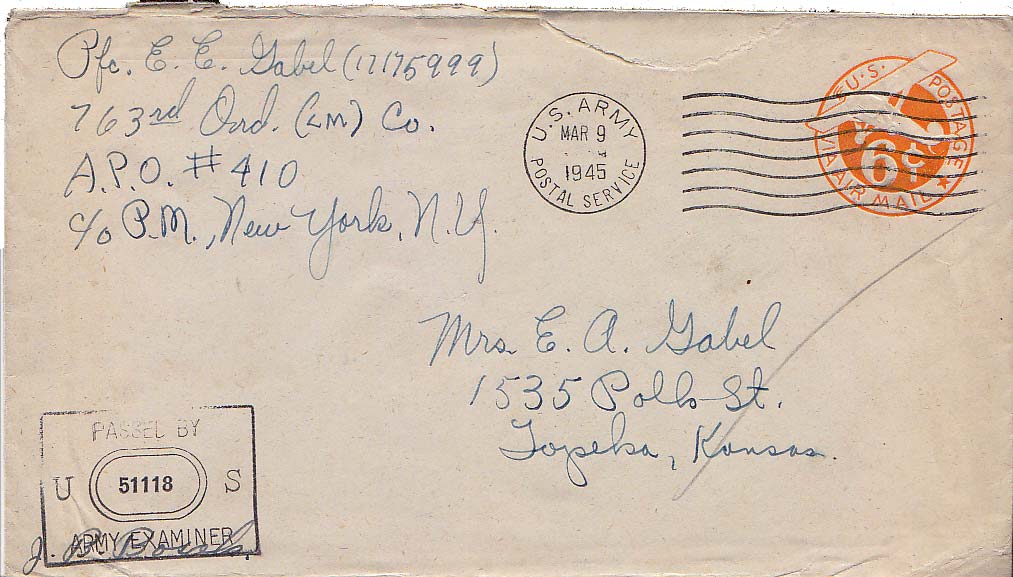 Pfc. E. E. Gabel (17175999)
763rd Ord. (LM) Co.
A.P.O. #410
c/o P.M., New York, N.Y.
U.S. ARMY
MAR 9
1945
POSTAL SERVICE
U.S. POSTAGE
6¢
VIA AIR MAIL
Mrs. E. A. Gabel
1535 Polk St.
Topeka, Kansas.
PASSED BY
U 51118 S
ARMY EXAMINER
J.